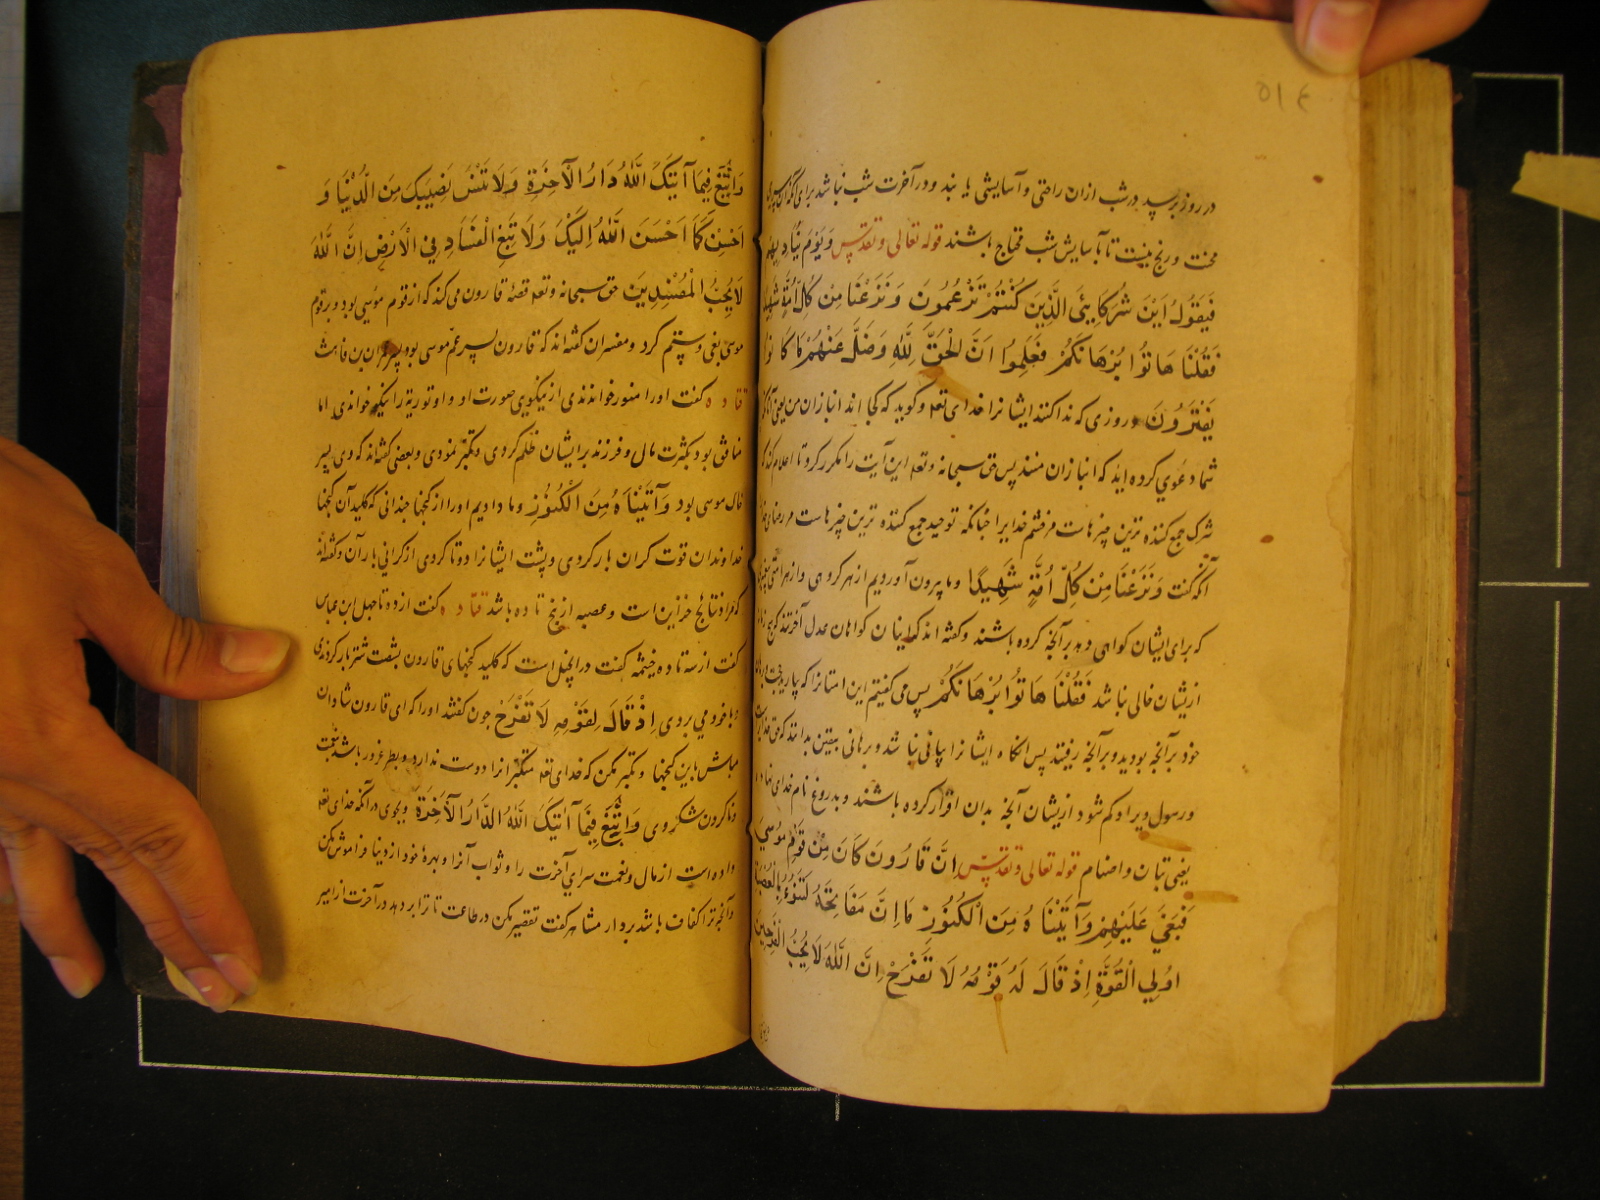 ۵۱۴
در روز برسد در شب ازان راحتی و آسایشی یابند و در آخرت شب نباشد برای آنکه
محنت و رنج نیست تا بآسایش شب محتاج باشند قوله تعالی و تقدس وَیَوْمَ یُنَادِیهِمْ
فَیَقُولُ اَیْنَ شُرَکَایِٔیَ الَّذِینَ کُنْتُمْ تَزْعُمُونَ وَنَزَعْنَا مِن کُلِّ اُمَّةٍ شَهِیدًا
فَقُلْنَا هَاتُوا بُرْهَانَکُمْ فَعَلِمُوا اَنَّ الْحَقَّ لِلّٰهِ وَضَلَّ عَنْهُمْ مَا کَانُوا
یَفْتَرُونَ و روزی که ندا کند ایشانرا خدای تعم و کوید که کجا اند انبازان من یعنی آنانکه
شما دعوی کرده اید که انبازان منند پس حق سبحانه و تعم این آیت را مکرر کرد تا اعلام کند که
شرک جمع کننده ترین چیزهاست مر خشم خدایرا چنانکه توحید جمع کننده ترین چیزهاست مر رضای
آنکه گفت وَنَزَعْنَا مِنْ کُلِّ اُمَّةٍ شَهِیدًا و ما بیرون آوردیم از هر کروهی و از هر امتی
که برای ایشان کواهی دهد بر آنچه کرده باشند و کفته اند که اینان کواهان عدل آخرتند که هیچ زمان
ازیشان خالی نباشد فَقُلْنَا هَاتُوا بُرْهَانَکُمْ پس می کفتیم این امتانرا که بیارید حجت
خود بر آنچه بودید و بر آنچه رفتید پس انکاه ایشانرا جوابی نباشد و برهانی بیقین بدانند که حق خدایراست
و رسول ویرا و کم شود ازیشان آنچه بدان اقرار کرده باشند و بدروغ نام خدای نهاده
یعنی بتان و اصنام قوله تعالی و تقدس اِنَّ قَارُونَ کَانَ مِنْ قَوْمِ مُوسیٰ
فَبَغیٰ عَلَیْهِمْ وَآتَیْنَاهُ مِنَ الْکُنُوزِ مَا اِنَّ مَفَاتِحَهُ لَتَنُوءُ بِالْعُصْبَةِ
اُولِی الْقُوَّةِ اِذْ قَالَ لَهُ قَوْمُهُ لَا تَفْرَحْ اِنَّ اللّٰهَ لَا یُحِبُّ الْفَرِحِینَ
وَابْتَغِ فِیمَا آتَیٰکَ اللّٰهُ دَارُ الْآخِرَةِ وَلَا تَنْسَ نَصِیبَکَ مِنَ الدُّنْیَا وَ
اَحْسِنْ کَمَا اَحْسَنَ اللّٰهُ اِلَیْکَ وَلَا تَبْغِ الْفَسَادَ فِی الْاَرْضِ اِنَّ اللّٰهَ
لَا یُحِبُّ الْمُفْسِدِینَ حق سبحانه و تعم قصهٔ قارون می کند که از قوم موسی بود و بر قوم
موسی بغی و ستم کرد و مفسران کفته اند که قارون پسر عم موسی بود پسر عمران بن قاهث
قتاده کفت اورا منور خواندندی از نیکویی صورت او و او توریة را نیکو خواندی اما
منافق بود بکثرت مال و فرزند بر ایشان ظلم کردی و تکبر نمودی و بعضی کفته اند که وی پسر
خال موسی بود وَآتَیْنَاهُ مِنَ الْکُنُوزِ و ما دادیم اورا از کنجها چندانی که کلید آن کنجها
خداوندان قوت کران بار کردی و پشت ایشانرا دوتا کردی از کرانی بار آن و کفته اند
که مراد نتایج خزاین است و عصبه از پنج تا ده باشد قتاده کفت از ده تا چهل ابن عباس
کفت از سه تا ده خیثمه کفت در انجیل است که کلید کنجهای قارون بشصت شتر بار کردندی
و با خود می بردی اِذْ قَالَ لِقَوْمِهِ لَا تَفْرَحْ چون کفتند اورا که ای قارون شادان
مباش باین کنجها و تکبر مکن که خدای تعم متکبرانرا دوست ندارد و بطر غرور باشد بنعمت
و ناکردن شکر وی وَابْتَغِ فِیمَا آتَیٰکَ اللّٰهُ الدَّارَ الْآخِرَةَ و بجوی در آنکه خدای تعم
داده است از مال و نعمت سرای آخرت را و ثواب آنرا و بهرهٔ خود از دنیا فراموش مکن
و آنچه ترا کفاف باشد بردار مشاهر کفت تقصیر مکن در طاعت تا ترا بر دهد در آخرت از امیر